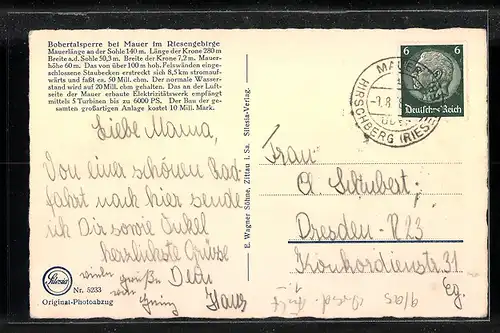 Bobertalsperre bei Mauer im Riesengebirge
Mauerlänge an der Sohle 140 m. Länge der Krone 280 m
Breite a. d. Sohle 50,3 m. Breite der Krone 7,2 m. Mauer-
höhe 60 m. Das von über 100 m hoh. Felswänden einge-
schlossene Staubecken erstreckt sich 8,5 km stromauf-
wärts und faßt ca. 50 Mill. cbm. Der normale Wasser-
stand wird auf 20 Mill. cbm gehalten. Das an der Luft-
seite der Mauer erbaute Elektrizitätswerk empfängt
mittels 5 Turbinen bis zu 6000 PS. Der Bau der ge-
samten großartigen Anlage kostet 10 Mill. Mark.
Liebe Mama,
Von einer schönen Rad-
fahrt nach hier sende
ich Dir sowie Onkel
herzlichste Grüsse
Dein
Hans
viele grüße
von
Silesia
Nr. 5233
Original-Photoabzug
E. Wagner Söhne, Zittau i. Sa. Silesia-Verlag.
6 6
Deutsches Reich
MAUER
HIRSCHBERG (RIES
Frau
A Schubert,
Dresden-A23
Konkordienstr. 31